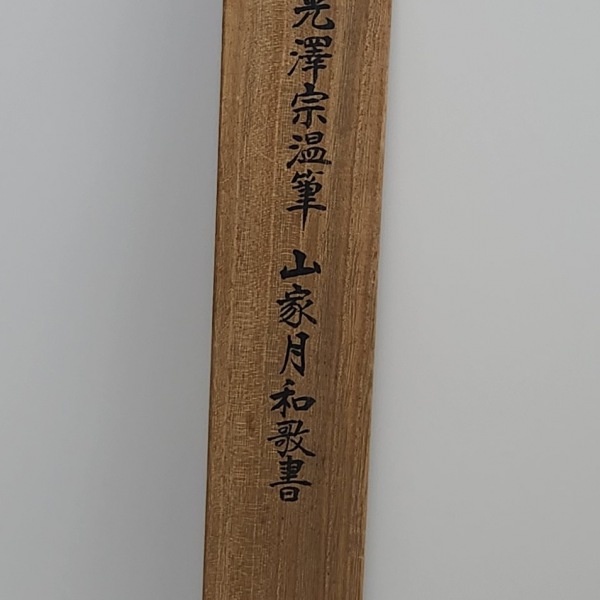 光澤宗温筆 山家月和歌書